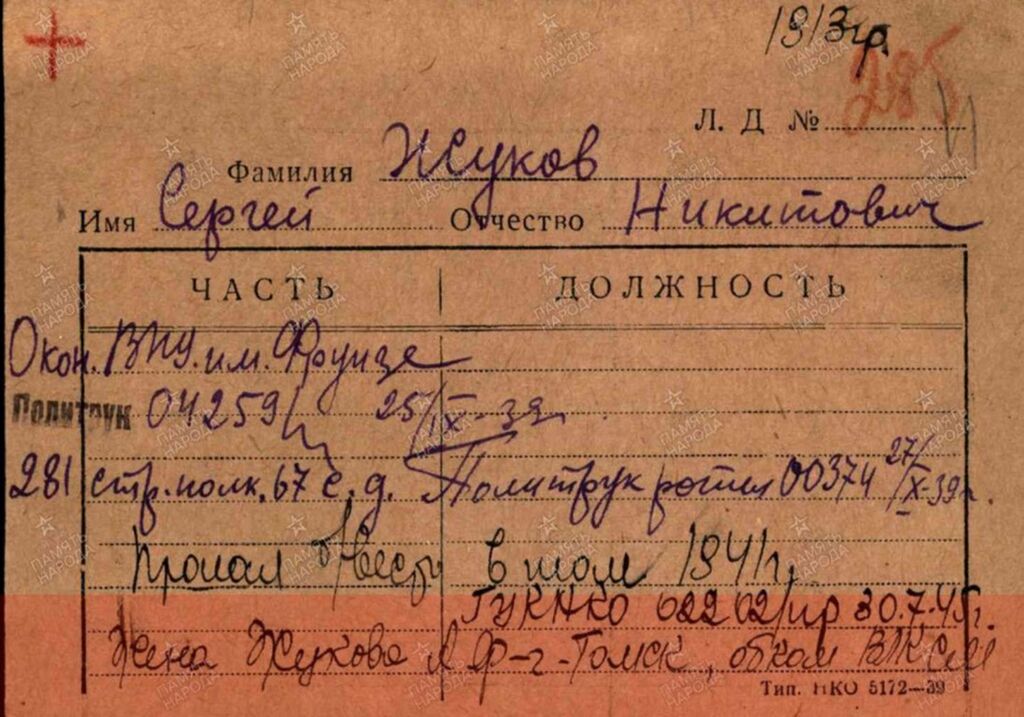 1913 гр.
285
Л. Д №
Фамилия Жуков
Имя Сергей Отчество Никитович
ЧАСТЬ ДОЛЖНОСТЬ
Окон. ВПУ. им. Фрунзе
Политрук 04259/ 25/IX-39г.
281 стр. полк. 67 с. д. Политрук роты 00374 27/X-39г.
Пропал б/вести в июле 1941г.
ГУКНКО 02262/пр 30.7.45г.
Жена Жукова А Ф-г-Томск, обком ВЛКСМ
Тип. НКО 5172—39
ПАМЯТЬ НАРОДА